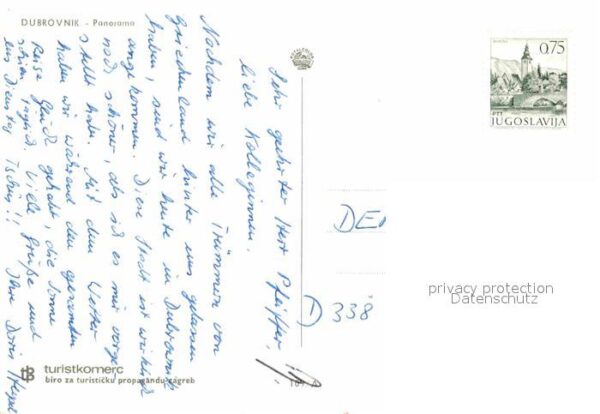 DUBROVNIK - Panorama
Sehr geehrter Herr Pfeiffer,
liebe Kolleginnen.
Nachdem wir alle Trümmer von
Griechenland hinter uns gelassen
haben, sind wir heute in Dubrovnik
angekommen. Diese Stadt ist wirklich
noch schöner, als ich es mir vorge-
stellt habe. Mit dem Wetter
haben wir während der gesamten
Reise Glück gehabt, die Sonne
schien täglich. Viele Grüße und
bis Dienstag Tschüs!! Ihre Doris
0,75
PTT
JUGOSLAVIJA
DE
D 338
privacy protection
Datenschutz
tb turistkomerc
biro za turističku propagandu zagreb